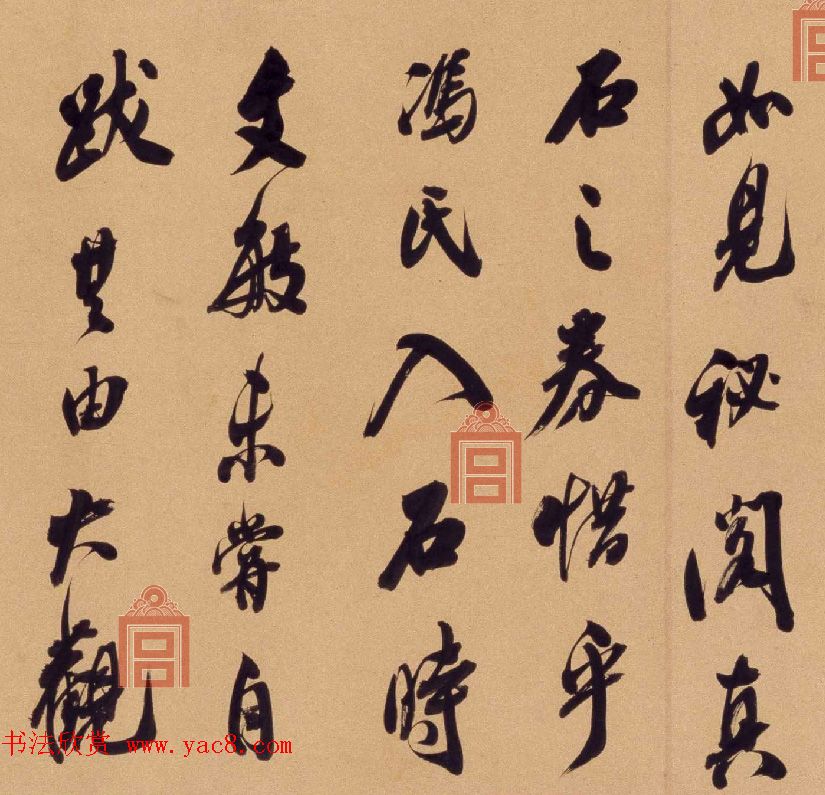 如見秘閣真
石之券惜乎
馮氏入石時
文敏未嘗自
跋其由大觀
书法欣赏 www.yac8.com